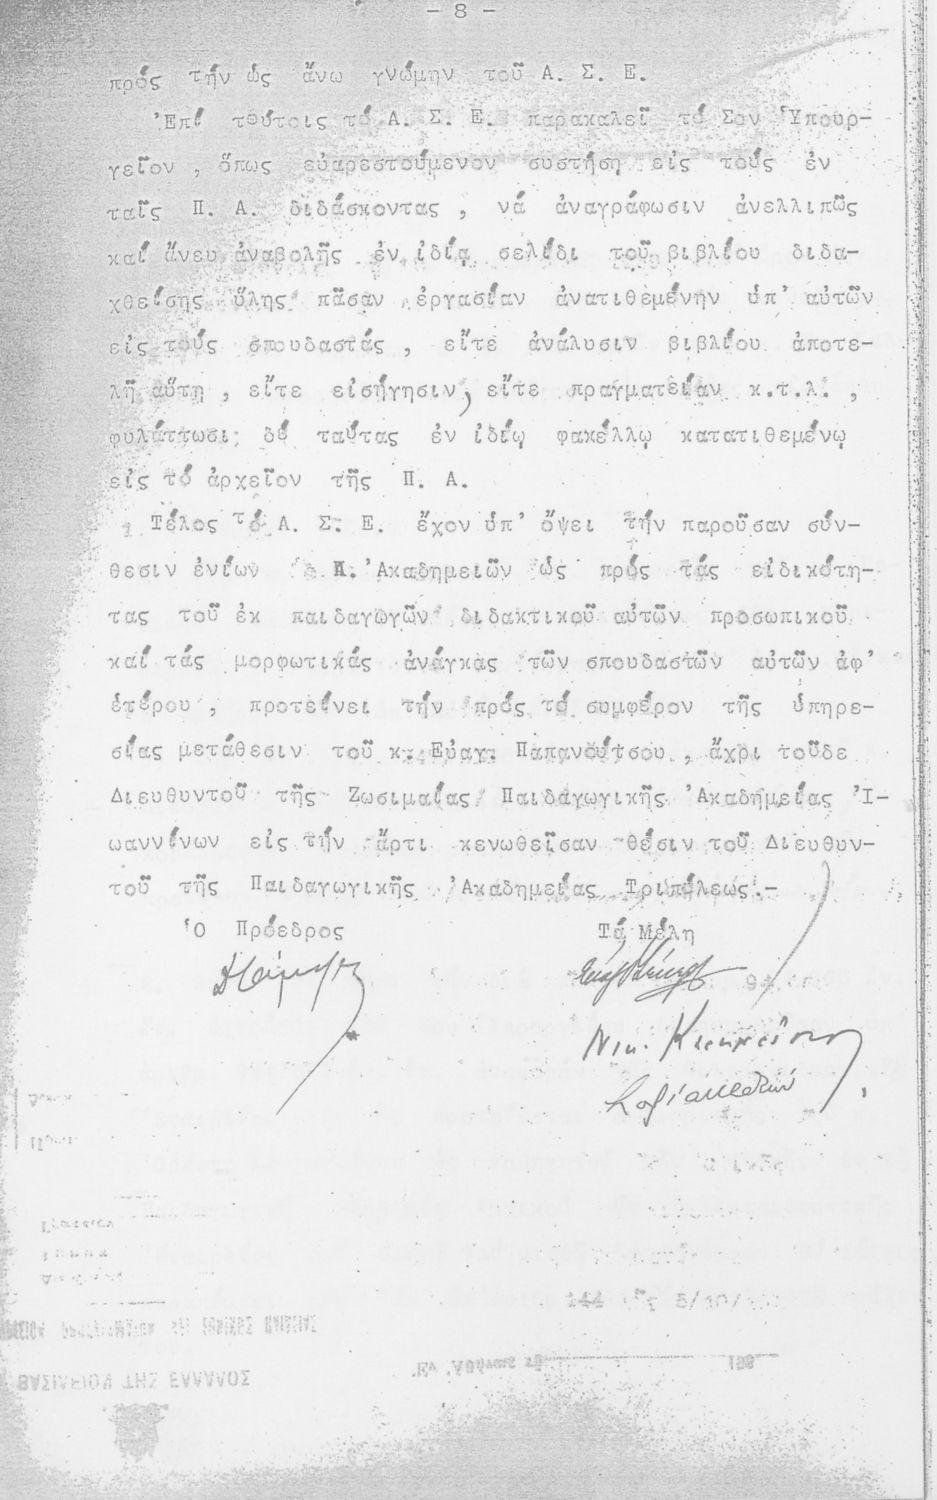 - 8 -
πρός τήν ὡς ἄνω γνώμην τοῦ Α. Σ. Ε.
Ἐπί τούτοις τό Α. Σ. Ε. παρακαλεῖ τό Σον Ὑπουρ-
γεῖον , ὅπως εὐαρεστούμενον συστήση εἰς τούς ἐν
ταῖς Π. Α. διδάσκοντας , νά ἀναγράφωσιν ἀνελλιπῶς
καί ἄνευ ἀναβολῆς ἐν ἰδίᾳ σελίδι τοῦ βιβλίου διδα-
χθείσης ὕλης πᾶσαν ἐργασίαν ἀνατιθεμένην ὑπ' αὐτῶν
εἰς τούς σπουδαστάς , εἴτε ἀνάλυσιν βιβλίου ἀποτε-
λῆ αὕτη , εἴτε εἰσήγησιν, εἴτε πραγματείαν κ.τ.λ. ,
φυλάττωσι δέ ταύτας ἐν ἰδίῳ φακέλλῳ κατατιθεμένῳ
εἰς τό ἀρχεῖον τῆς Π. Α.
Τέλος τό Α. Σ. Ε. ἔχον ὑπ' ὄψει τήν παροῦσαν σύν-
θεσιν ἐνίων Π. Ἀκαδημειῶν ὡς πρός τάς εἰδικότη-
τας τοῦ ἐκ παιδαγωγῶν διδακτικοῦ αὐτῶν προσωπικοῦ
καί τάς μορφωτικάς ἀνάγκας τῶν σπουδαστῶν αὐτῶν ἀφ'
ἑτέρου , προτείνει τήν πρός τό συμφέρον τῆς ὑπηρε-
σίας μετάθεσιν τοῦ κ. Εὐαγ. Παπανούτσου , ἄχρι τοῦδε
Διευθυντοῦ τῆς Ζωσιμαίας Παιδαγωγικῆς Ἀκαδημείας Ἰ-
ωαννίνων εἰς τήν ἄρτι κενωθεῖσαν θέσιν τοῦ Διευθυν-
τοῦ τῆς Παιδαγωγικῆς Ἀκαδημείας Τριπόλεως.-
Ὁ Πρόεδρος Τά Μέλη
Νικ.